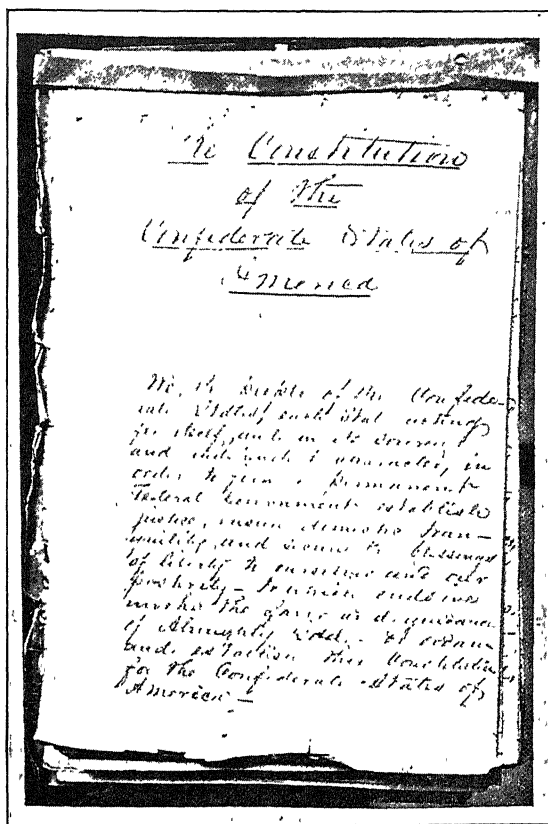 The Constitution
of the
Confederate States of
America
We, the People of the Confede-
rate States, each State acting
for itself, and in its sovereign
and independent character, in
order to form a permanent
Federal Government, establish
justice, insure domestic tran-
quility, and secure the blessings
of liberty to ourselves and our
posterity — to which ends we
invoke the favor and guidance
of Almighty God — do ordain
and establish this Constitution
for the Confederate States of
America —